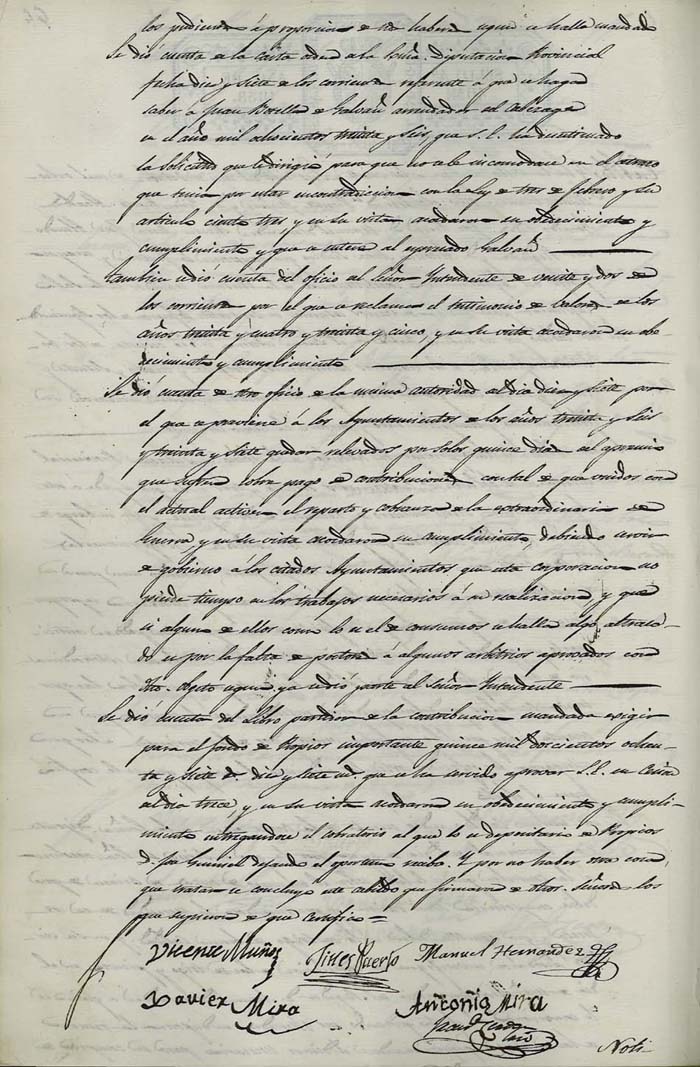 los pudientes á proporcion de sus haberes segun se halla mandado
Se dió cuenta de la carta orden de la Exma. Diputacion Provincial
fecha diez y siete de los corrientes referente á que se haga
saber á Juan Botella de Galvañ arrendador del
en el año mil ochocientos treinta y seis, que S. E. ha desestimado
la solicitud que le dirigió para que no se le incomodase en el
que tenia por estar en contradiccion con la Ley de tres de febrero y su
articulo ciento tres y en su vista acordaron su obedecimiento y
cumplimiento y que se entere al espresado Galvañ
Tambien se dió cuenta del oficio del Señor Intendente de veinte y dos de
los corrientes por el que se reclama el testimonio de valores de los
años treinta y cuatro y treinta y cinco, y en su vista acordaron su obe
decimiento y cumplimiento
Se dió cuenta de otro oficio de la misma autoridad del dia diez y siete por
el que se previene á los Ayuntamientos de los años treinta y seis
y treinta y siete quedar relevados por solos quince dias del apremio
que sufren sobre pago de contribuciones con tal de que unidos con
el actual activen el reparto y cobranza de la extraordinaria de
Guerra y en su vista acordaron su cumplimiento, debiendo servir
de gobierno á los citados Ayuntamientos que esta corporacion no
pierde tiempo en los trabajos necesarios á su realizacion y que
si alguno de ellos como lo es el de consumos se halla algo atrasa-
do es por la falta de postores á algunos arbitrios aprovados con
dho. objeto segun ya se dió parte al Señor Intendente
Se dió cuenta del Libro partidor de la contribucion mandada exigir
para el fondo de Propios importante quince mil doscientos ochen-
ta y siete rs. diez y siete ms. que se ha servido aprovar S. E. en
del dia trece, y en su vista acordaron su obedecimiento y cumpli-
miento entregandose el cobratorio al que lo es depositario de Propios
D. dejando el oportuno recibo. Y por no haber otra cosa
que tratar se concluyó este cabildo que firmaron de otros Señores los
que supieron de que certifico =
Vicente Muñoz Manuel Hernandez
Xavier Mira Antonio Mira